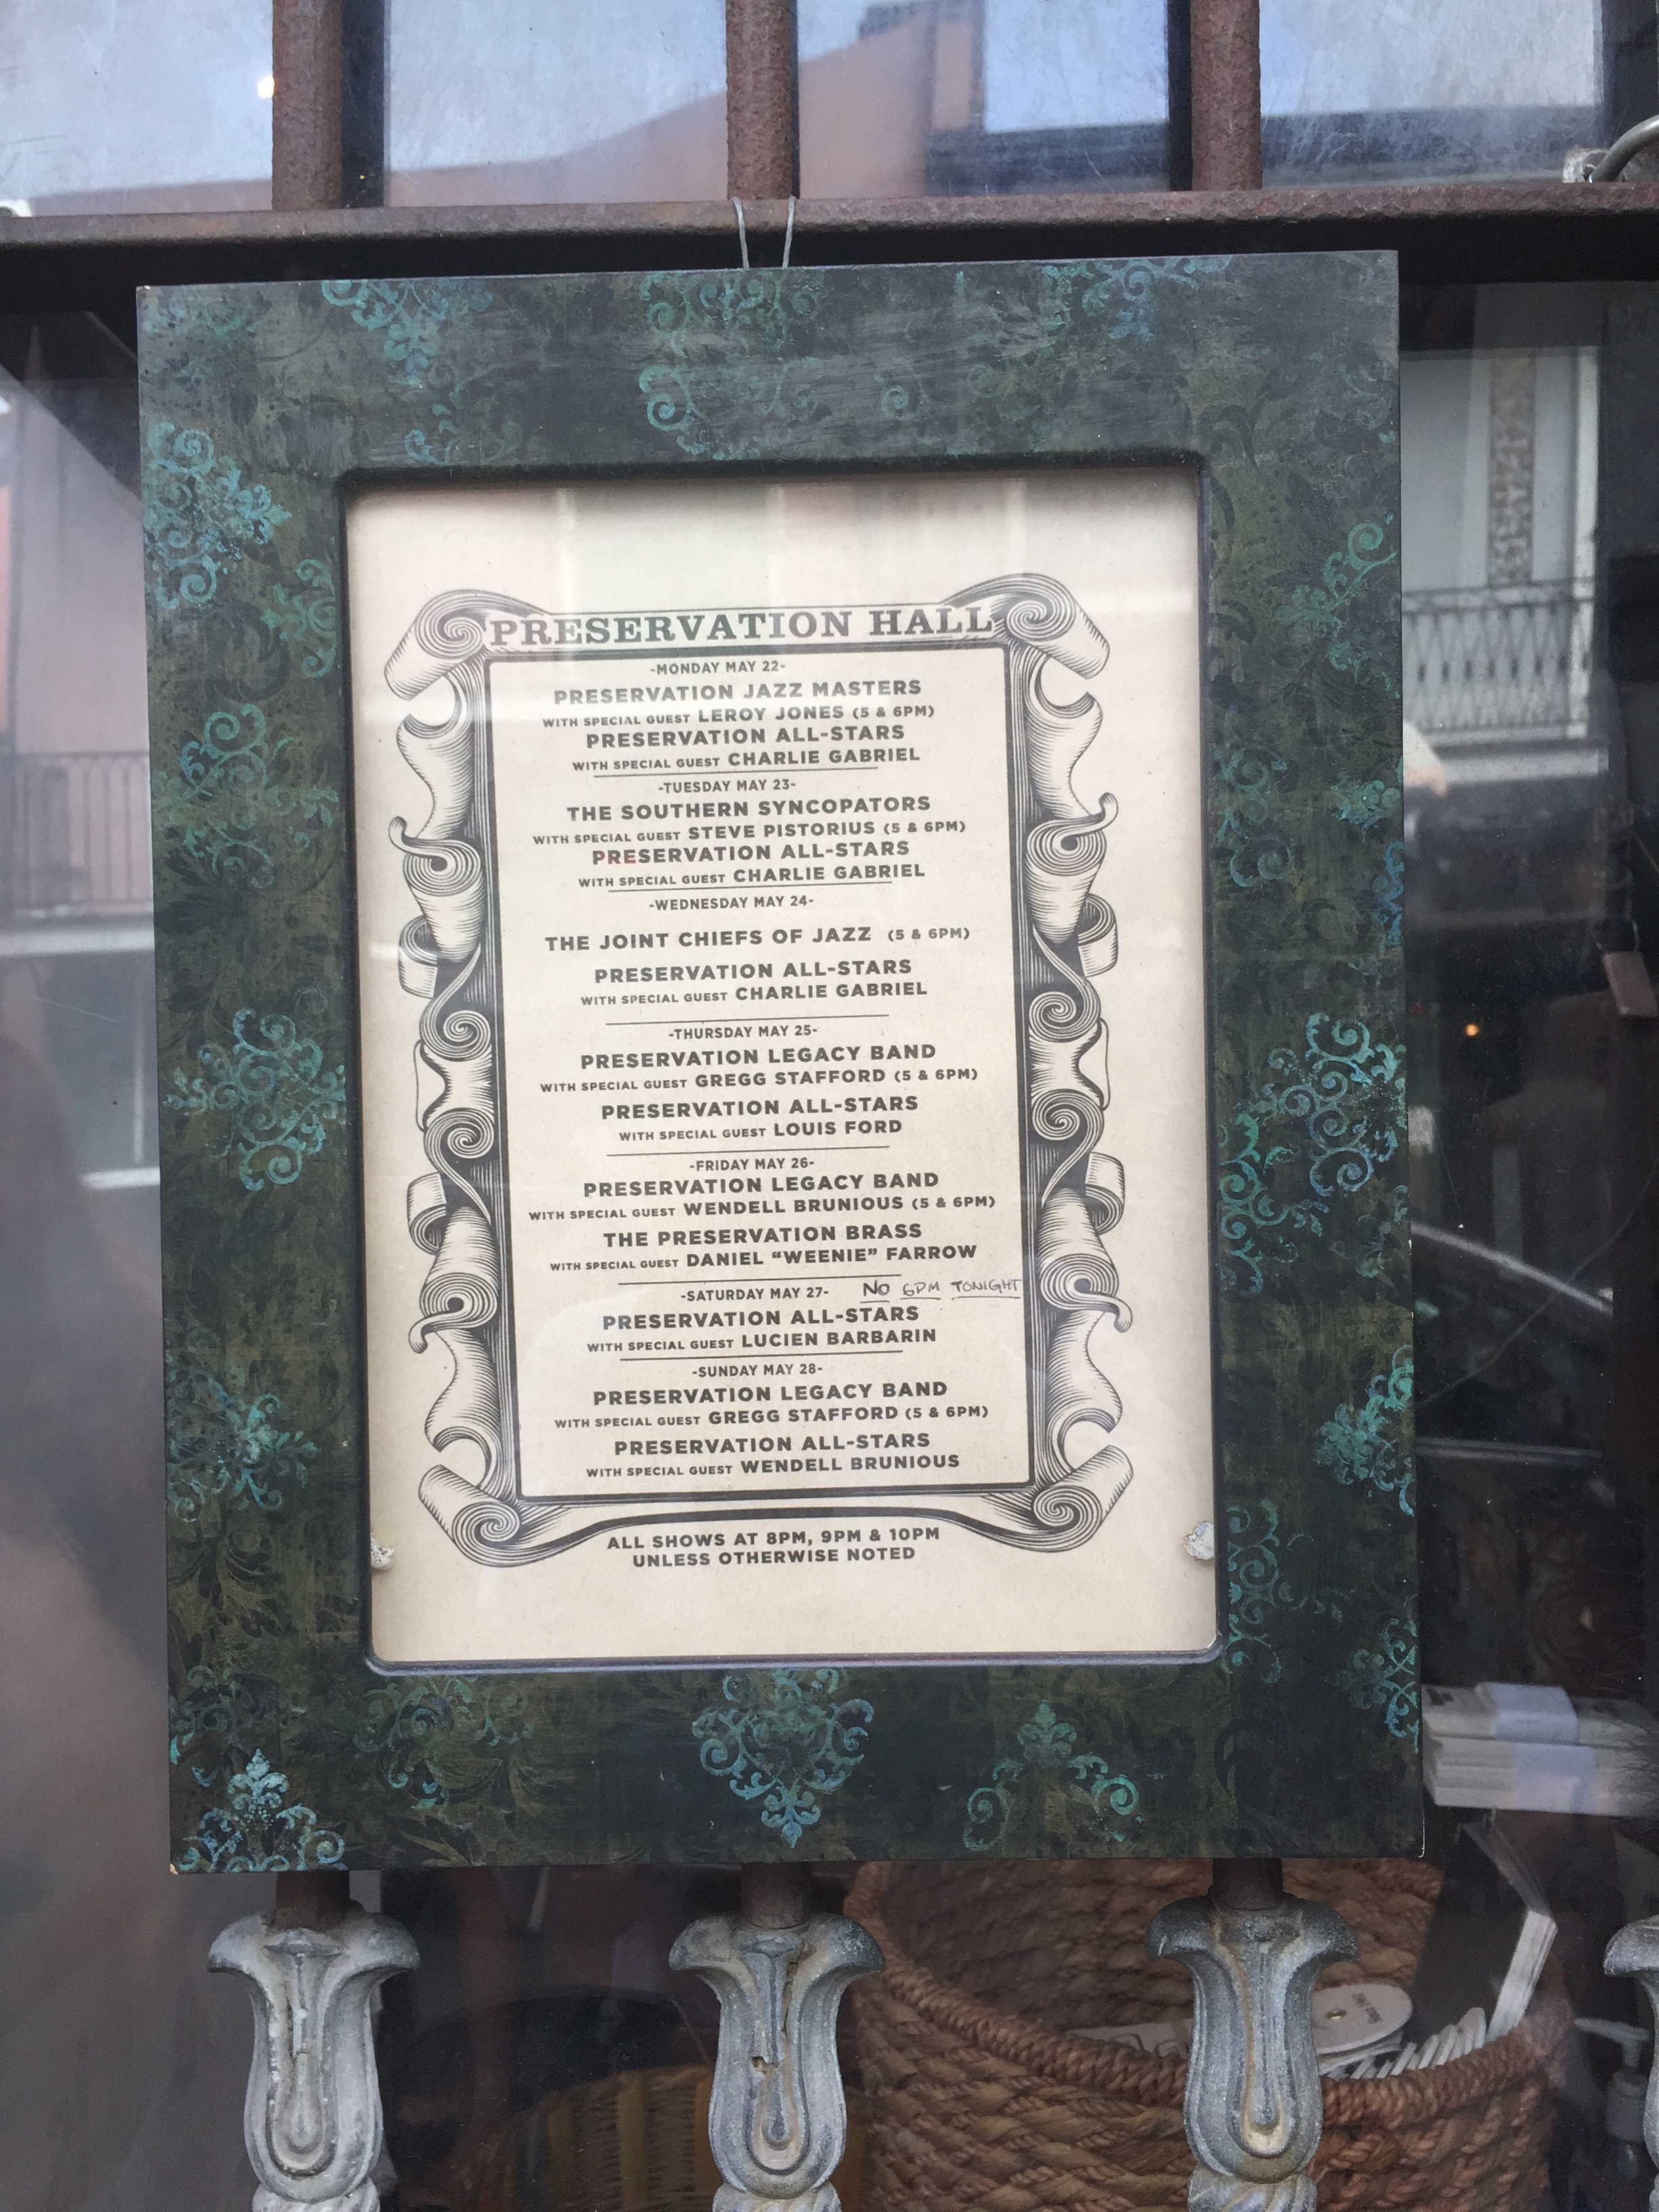 PRESERVATION HALL
-MONDAY MAY 22-
PRESERVATION JAZZ MASTERS
WITH SPECIAL GUEST LEROY JONES (5 & 6PM)
PRESERVATION ALL-STARS
WITH SPECIAL GUEST CHARLIE GABRIEL
-TUESDAY MAY 23-
THE SOUTHERN SYNCOPATORS
WITH SPECIAL GUEST STEVE PISTORIUS (5 & 6PM)
PRESERVATION ALL-STARS
WITH SPECIAL GUEST CHARLIE GABRIEL
-WEDNESDAY MAY 24-
THE JOINT CHIEFS OF JAZZ (5 & 6PM)
PRESERVATION ALL-STARS
WITH SPECIAL GUEST CHARLIE GABRIEL
-THURSDAY MAY 25-
PRESERVATION LEGACY BAND
WITH SPECIAL GUEST GREGG STAFFORD (5 & 6PM)
PRESERVATION ALL-STARS
WITH SPECIAL GUEST LOUIS FORD
-FRIDAY MAY 26-
PRESERVATION LEGACY BAND
WITH SPECIAL GUEST WENDELL BRUNIOUS (5 & 6PM)
THE PRESERVATION BRASS
WITH SPECIAL GUEST DANIEL “WEENIE” FARROW
-SATURDAY MAY 27- NO 6PM TONIGHT
PRESERVATION ALL-STARS
WITH SPECIAL GUEST LUCIEN BARBARIN
-SUNDAY MAY 28-
PRESERVATION LEGACY BAND
WITH SPECIAL GUEST GREGG STAFFORD (5 & 6PM)
PRESERVATION ALL-STARS
WITH SPECIAL GUEST WENDELL BRUNIOUS
ALL SHOWS AT 8PM, 9PM & 10PM
UNLESS OTHERWISE NOTED